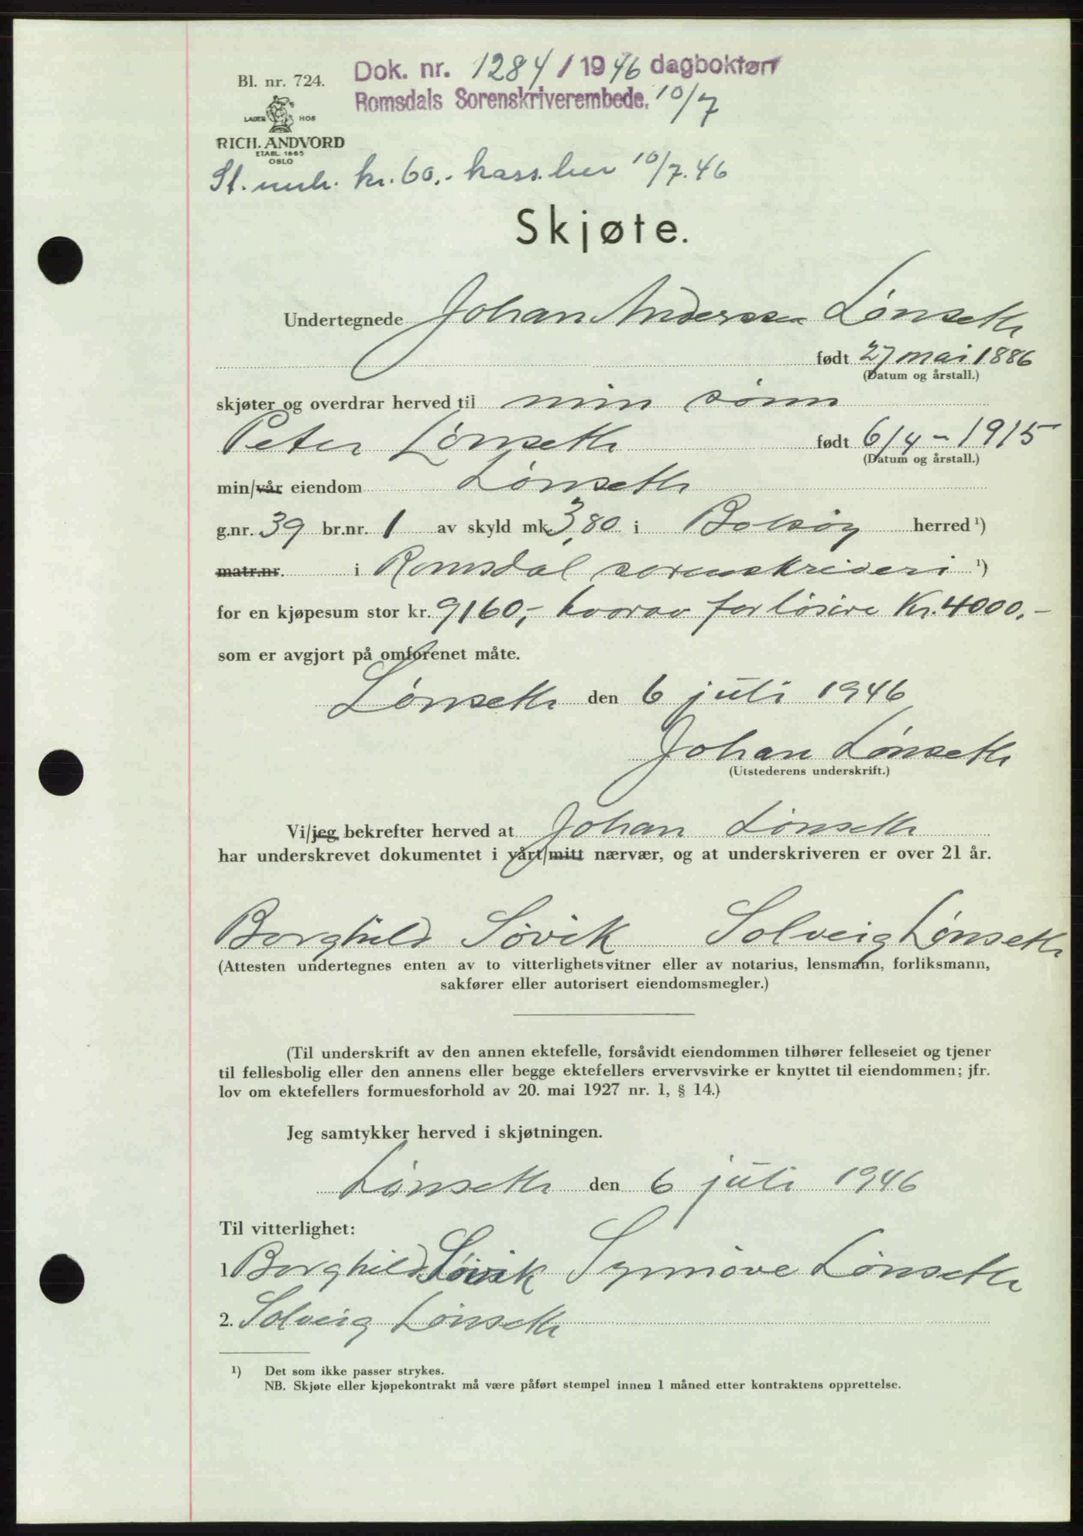 Bl. nr. 724.
LAGER HOS
RICH. ANDVORD
ETABL. 1865
OSLO
Dok. nr. 1284 / 1946 dagbokført
Romsdals Sorenskriverembede, 10/7
St. merk. kr. 60,- kass. her 10/7.46
Skjøte.
Undertegnede Johan Anderssen Lønseth
født 27 mai 1886
(Datum og årstall.)
skjøter og overdrar herved til min sønn
Peter Lønseth født 6/4 - 1915
(Datum og årstall.)
min/vår eiendom Lønseth
g.nr. 39 br.nr. 1 av skyld mk 3,80 i Bolsøy herred ¹)
matr.nr. i Romsdal sorenskriveri ¹)
for en kjøpesum stor kr. 9160,- hvorav for løsøre Kr. 4000,-
som er avgjort på omforenet måte.
Lønseth den 6 juli 1946
Johan Lønseth
(Utstederens underskrift.)
Vi/jeg bekrefter herved at Johan Lønseth
har underskrevet dokumentet i vårt/mitt nærvær, og at underskriveren er over 21 år.
Borghild Søvik Solveig Lønseth
(Attesten undertegnes enten av to vitterlighetsvitner eller av notarius, lensmann, forliksmann,
sakfører eller autorisert eiendomsmegler.)
(Til underskrift av den annen ektefelle, forsåvidt eiendommen tilhører felleseiet og tjener
til fellesbolig eller den annens eller begge ektefellers ervervsvirke er knyttet til eiendommen; jfr.
lov om ektefellers formuesforhold av 20. mai 1927 nr. 1, § 14.)
Jeg samtykker herved i skjøtningen.
Lønseth den 6 juli 1946
Til vitterlighet:
1. Borghild Søvik Synnøve Lønseth
2. Solveig Lønseth
¹) Det som ikke passer strykes.
NB. Skjøte eller kjøpekontrakt må være påført stempel innen 1 måned etter kontraktens opprettelse.